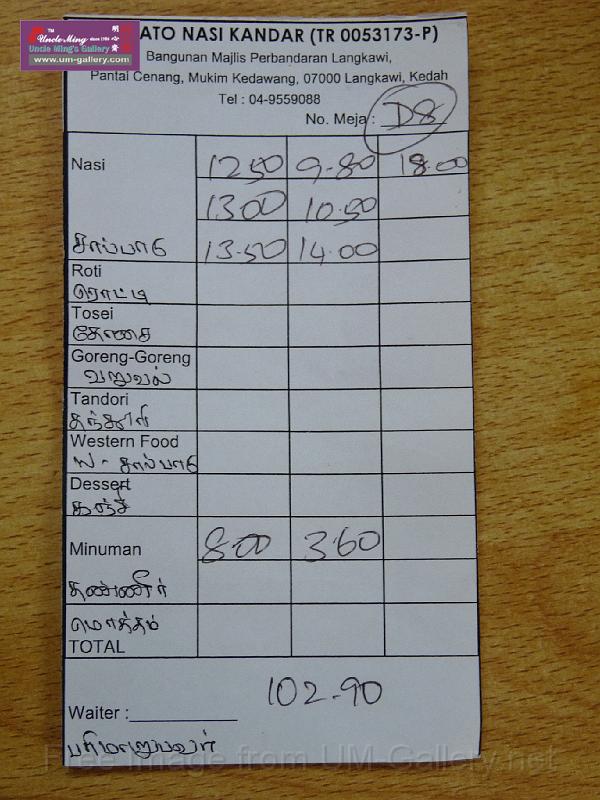 TM
Uncle Ming since 1984
Uncle Ming's Gallery
www.um-gallery.com
ATO NASI KANDAR (TR 0053173-P)
Bangunan Majlis Perbandaran Langkawi,
Pantai Cenang, Mukim Kedawang, 07000 Langkawi, Kedah
Tel : 04-9559088
No. Meja : D8
Nasi 1250 9-80 18.00
1300 10.50
சாப்பாடு 13.50 14.00
Roti
ரொட்டி
Tosei
தோசை
Goreng-Goreng
வறுவல்
Tandori
தந்தூரி
Western Food
W - சாப்பாடு
Dessert
கஞ்சி
Minuman 8.00 360
தண்ணீர்
மொத்தம்
TOTAL
102-90
Waiter :
பரிமாறுபவர்
Free image from UM-Gallery.net